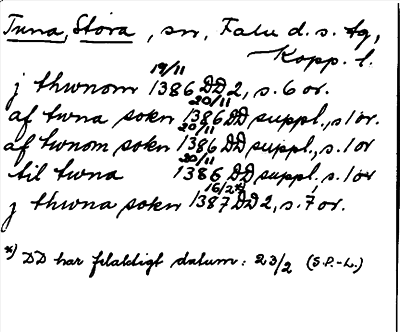 Tuna, Stora, sn, Falu d. s. tg,
Kopp. l.
j thwnom 19/11 1386 DD 2, s. 6 or.
af twna sokn 20/11 1386 DD suppl., s. 1 or.
af twnom sokn 20/11 1386 DD suppl., s. 1 or
til twna 20/11 1386 DD suppl., s. 1 or
j thwna sokn 16/2*) 1387 DD 2, s. 7 or.
*) DD har felaktigt datum: 23/2 (S.P.-L.)